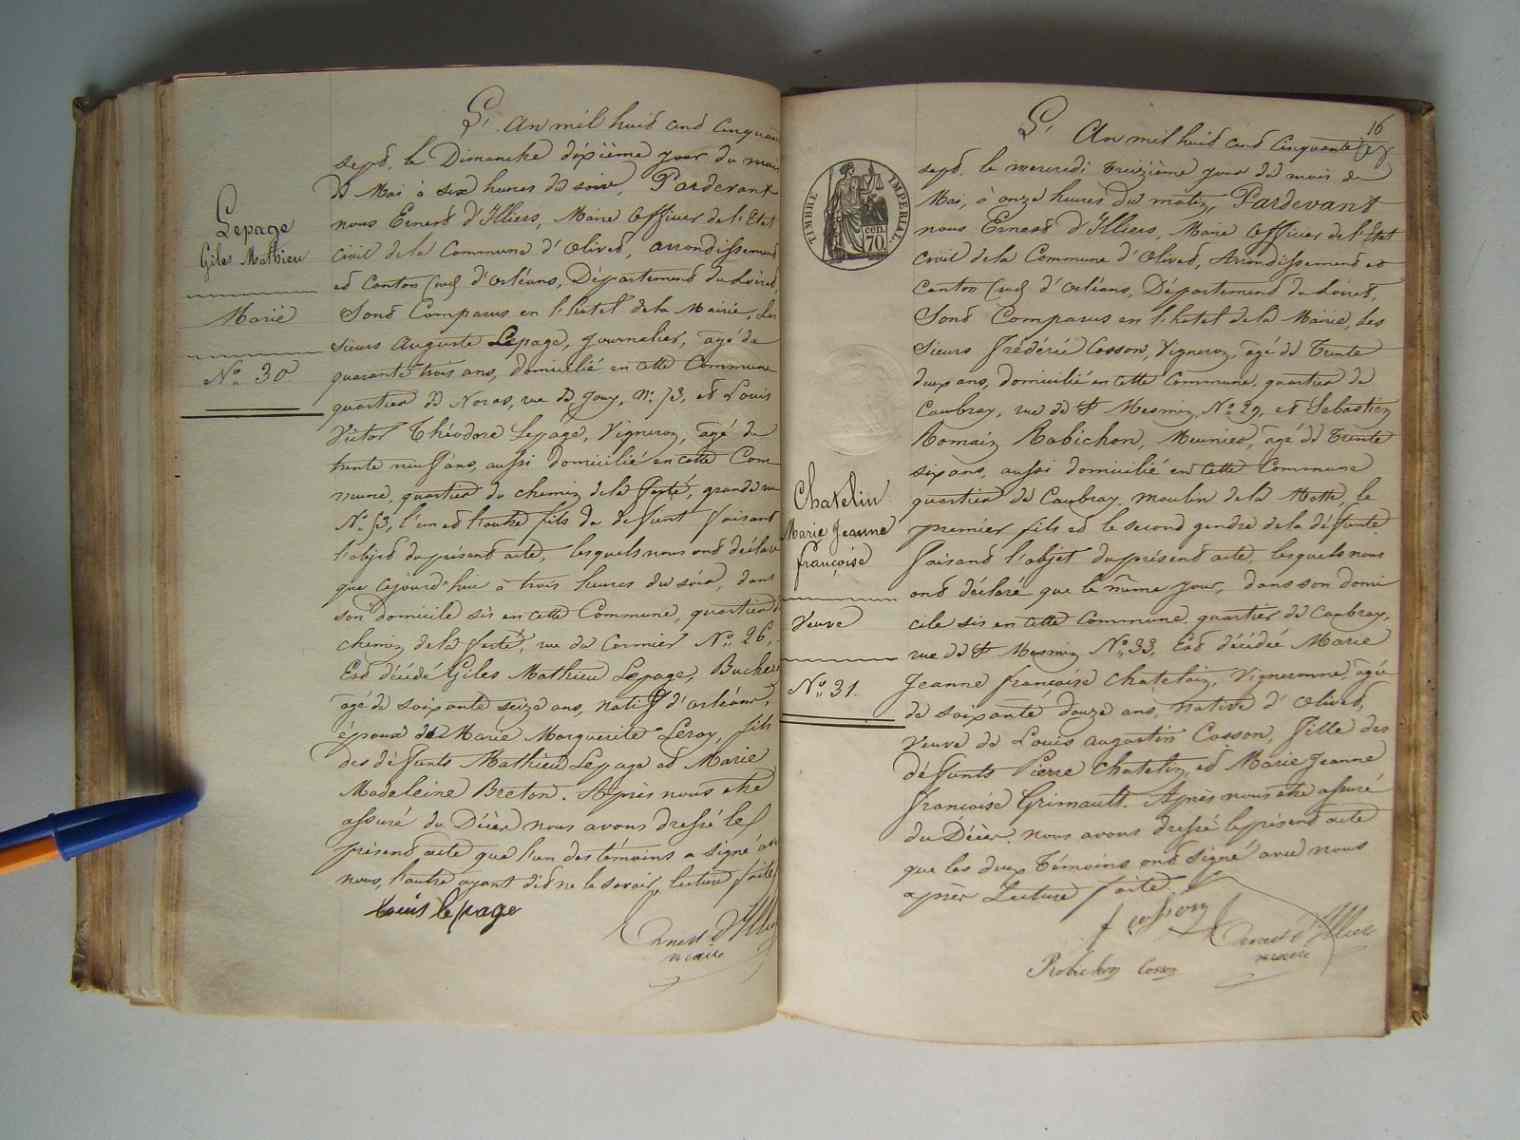 Lepage
Giles Mathieu
Marié
No. 30
L'An mil huit cent cinquante
sept, le Dimanche dixième jour du mois
de Mai à six heures du soir, Pardevant
nous Ernest d'Illiers, Maire Officier de l'Etat
Civil de la Commune d'Olivet, arrondissement
et Canton sud d'Orléans, Département du Loiret,
Sont Comparus en l'hôtel de la Mairie, les
sieurs Auguste Lepage, Journalier, âgé de
quarante trois ans, domicilié en cette Commune
quartier de Noras, rue de Jouy, No. 73, et Louis
Victor Théodore Lepage, Vigneron, âgé de
trente neuf ans, aussi domicilié en cette Com
mune, quartier du chemin de la ferté, grande rue
No. 53, l'un et l'autre fils de defunt faisant
l'objet du présent acte, lesquels nous ont déclaré
que cejourd'hui à trois heures du soir, dans
son domicile sis en cette Commune, quartier du
chemin de la ferté, rue du Cormier No. 26,
Est décédé Giles Mathieu Lepage, Bucher
âgé de soixante seize ans, natif d'orléans,
époux de Marie Marguerite Leroy, fils
des défunts Mathieu Lepage et Marie
Madeleine Breton. Après nous être
assuré du Décès nous avons dressé le
présent acte que l'un des témoins a signé avec
nous, l'autre ayant dit ne le savoir, lecture faite
Louis lepage
Ernest d'Illiers
maire
16
TIMBRE IMPERIAL
70 cen.
Chatelin
Marie Jeanne
françoise
Veuve
No. 31.
L'An mil huit cent cinquante
sept, le mercredi Treizième jour du mois de
Mai, à onze heures du matin, Pardevant
nous Ernest d'Illiers, Maire Officier de l'Etat
Civil de la Commune d'Olivet, Arrondissement et
Canton sud d'orléans, Département du Loiret,
Sont Comparus en l'hotel de la Mairie, les
sieurs frédéric Cosson, Vigneron, âgé de Trente
deux ans, domicilié en cette Commune, quartier de
Caubray, rue de St Mesmin, No. 29, et Sebastien
Romain Robichon, Meunier, âgé de Trente
six ans, aussi domicilié en cette Commune
quartier de Caubray, moulin de la Motte, le
premier fils et le second gendre de la défunte
faisant l'objet du présent acte, lesquels nous
ont déclaré que le même jour, dans son domi
cile sis en cette Commune, quartier de Caubray,
rue de St Mesmin No. 33. Est décédée Marie
Jeanne françoise Chatelain, Vigneronne, âgée
de soixante douze ans, native d'Olivet,
Veuve de Louis augustin Cosson, fille des
défunts Pierre Chatelin et Marie Jeanne
françoise Grimault. Après nous être assuré
du Décès, nous avons dressé le présent acte
que les deux Témoins ont signé avec nous
après Lecture faite.
f cosson
Ernest d'Illiers
maire
Robichon Cosson